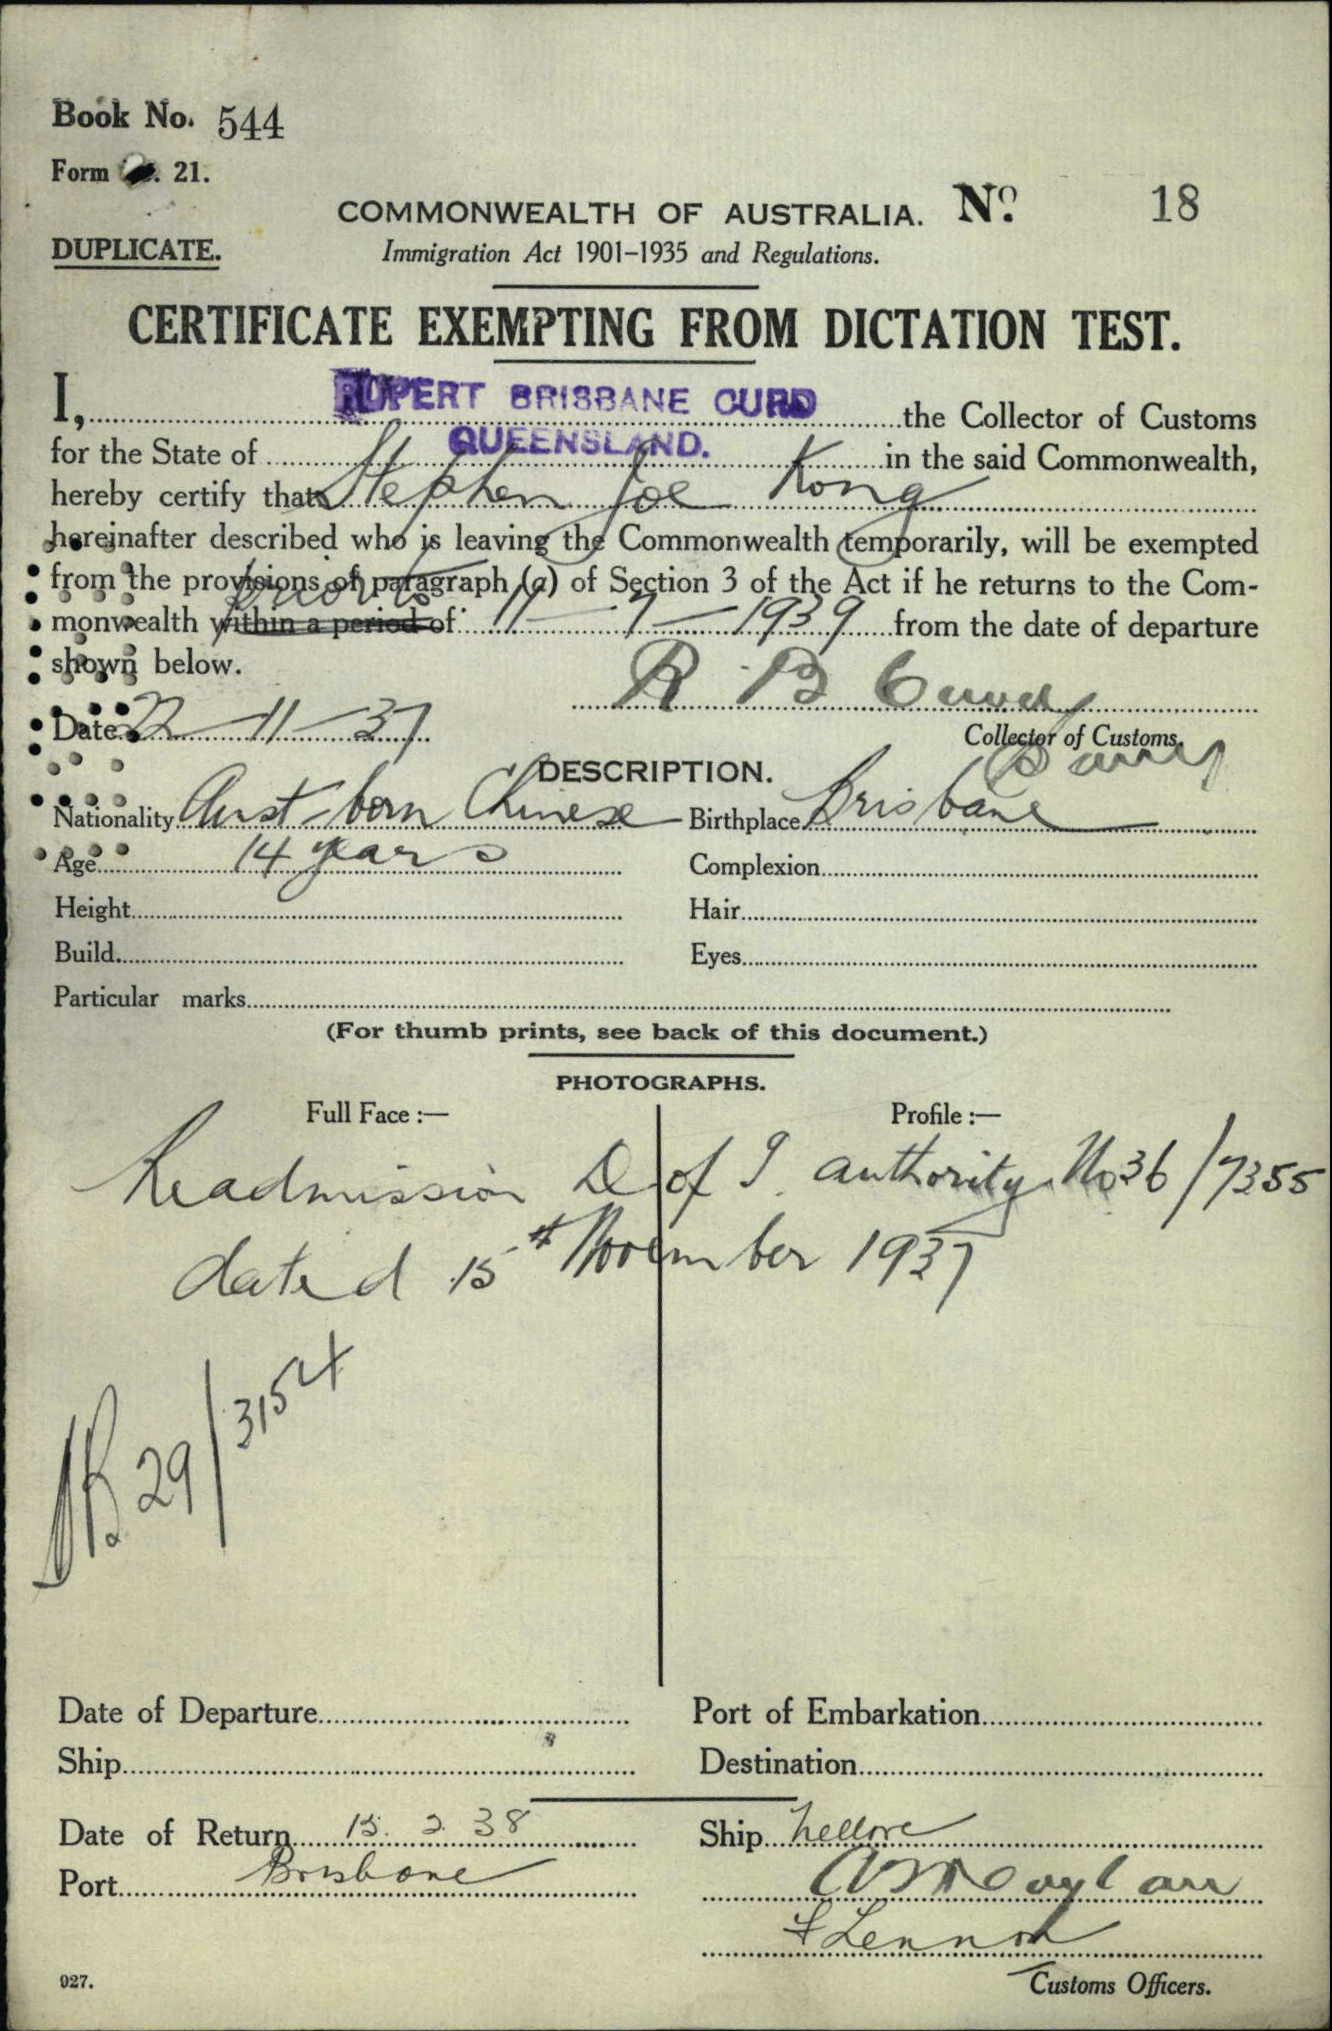 Book No. 544
Form 21.
COMMONWEALTH OF AUSTRALIA. No. 18
DUPLICATE.
Immigration Act 1901-1935 and Regulations.
CERTIFICATE EXEMPTING FROM DICTATION TEST.
I, RUPERT BRISBANE CURD the Collector of Customs
for the State of QUEENSLAND. in the said Commonwealth,
hereby certify that Stephen Joe Kong
hereinafter described who is leaving the Commonwealth temporarily, will be exempted
from the provisions of paragraph (a) of Section 3 of the Act if he returns to the Com-
prior to
monwealth within a period of 11-7-1939 from the date of departure
shown below.
R B Curd
Date 22-11-37
Collector of Customs.
DESCRIPTION.
Nationality Aust-born Chinese Birthplace Brisbane
Age 14 years Complexion
Height Hair
Build Eyes
Particular marks
(For thumb prints, see back of this document.)
PHOTOGRAPHS.
Full Face :— Profile :—
Readmission D of I. authority No 36/7355
dated 15th November 1937
29/3154
Date of Departure Port of Embarkation
Ship Destination
Date of Return 15. 2. 38 Ship Nellore
Port Brisbane
Lennon
Customs Officers.
927.